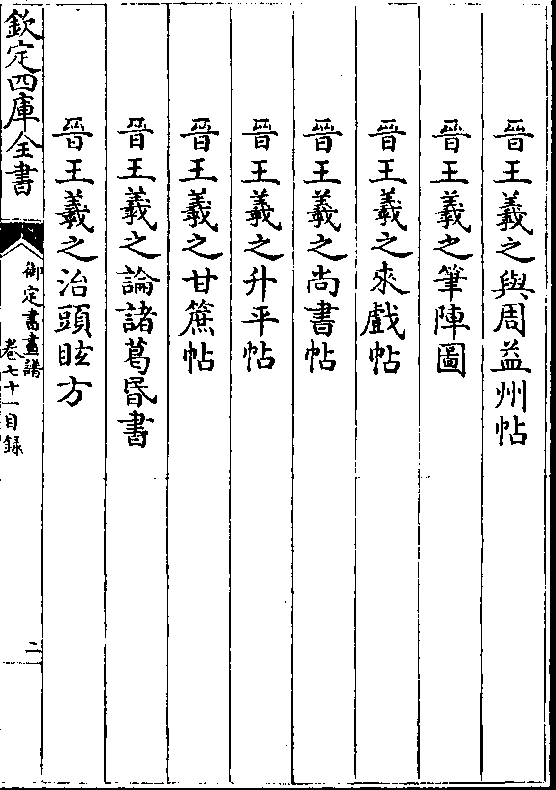 晉王羲之與周益州帖
晉王羲之筆陣圖
晉王羲之來戲帖
晉王羲之尚書帖
晉王羲之升平帖
晉王羲之甘蔗帖
晉王羲之論諸葛昬書
晉王羲之治頭眩方
欽定四庫全書
御定書畫譜
卷七十一目録
二